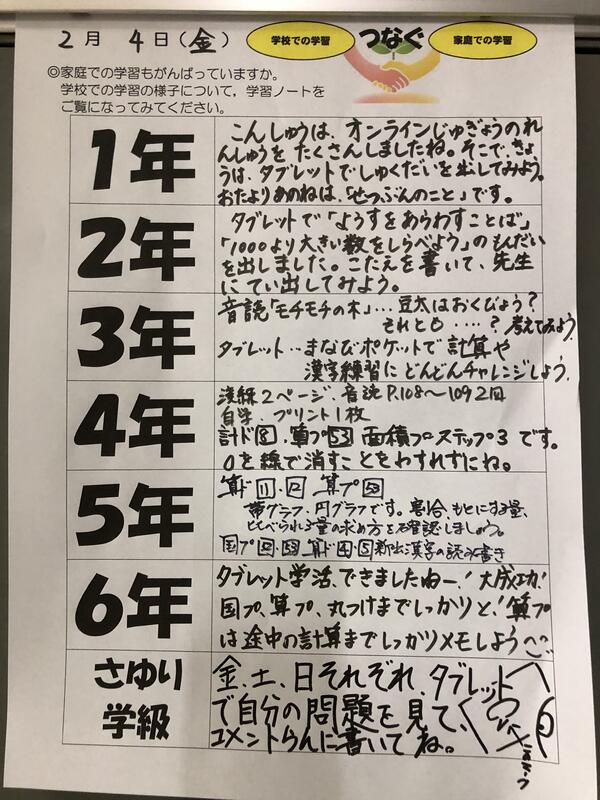 2月 4日(金)
学校での学習
つなぐ
家庭での学習
◎家庭での学習もがんばっていますか。
学校での学習の様子について，学習ノートを
ご覧になってみてください。
1年
こんしゅうは、オンラインじゅぎょうのれ
んしゅうを たくさんしましたね。そこで、きょ
うは、タブレットでしゅくだいを出してみよう。
おたよりあのねは、「せつぶんのこと」です。
2年
タブレットで「ようすをあらわすことば」
「1000より大きい数をしらべよう」のもんだい
を出しました。こたえを書いて、先生
にてい出してみよう。
3年
音読「モチモチの木」…豆太はおくびょう?
それとも ‥‥? 考えてみよう
タブレット…まなびポケットで計算や
漢字練習にどんどんチャレンジしよう。
4年
漢練2ページ、音読P.108〜109 2回
自学、プリント1枚
計ド8、算プ53 面積プステップ3 です。
0を線で消すことをわすれずにね。
5年
算ド11、12 算プ
帯グラフ、円グラフです。割合、もとにする量、
くらべられる量の求め方を確認しましょう。
国プ 算ド4、5 新出漢字の読み書き
6年
タブレット学活、できましたねー!大成功!
国プ、算プ、丸つけまでしっかりと!算プ
は途中の計算までしっかりメモしよう
さゆり
学級
金、土、日それぞれ、タブレット
で自分の問題を見て、
コメントらんに書いてね。